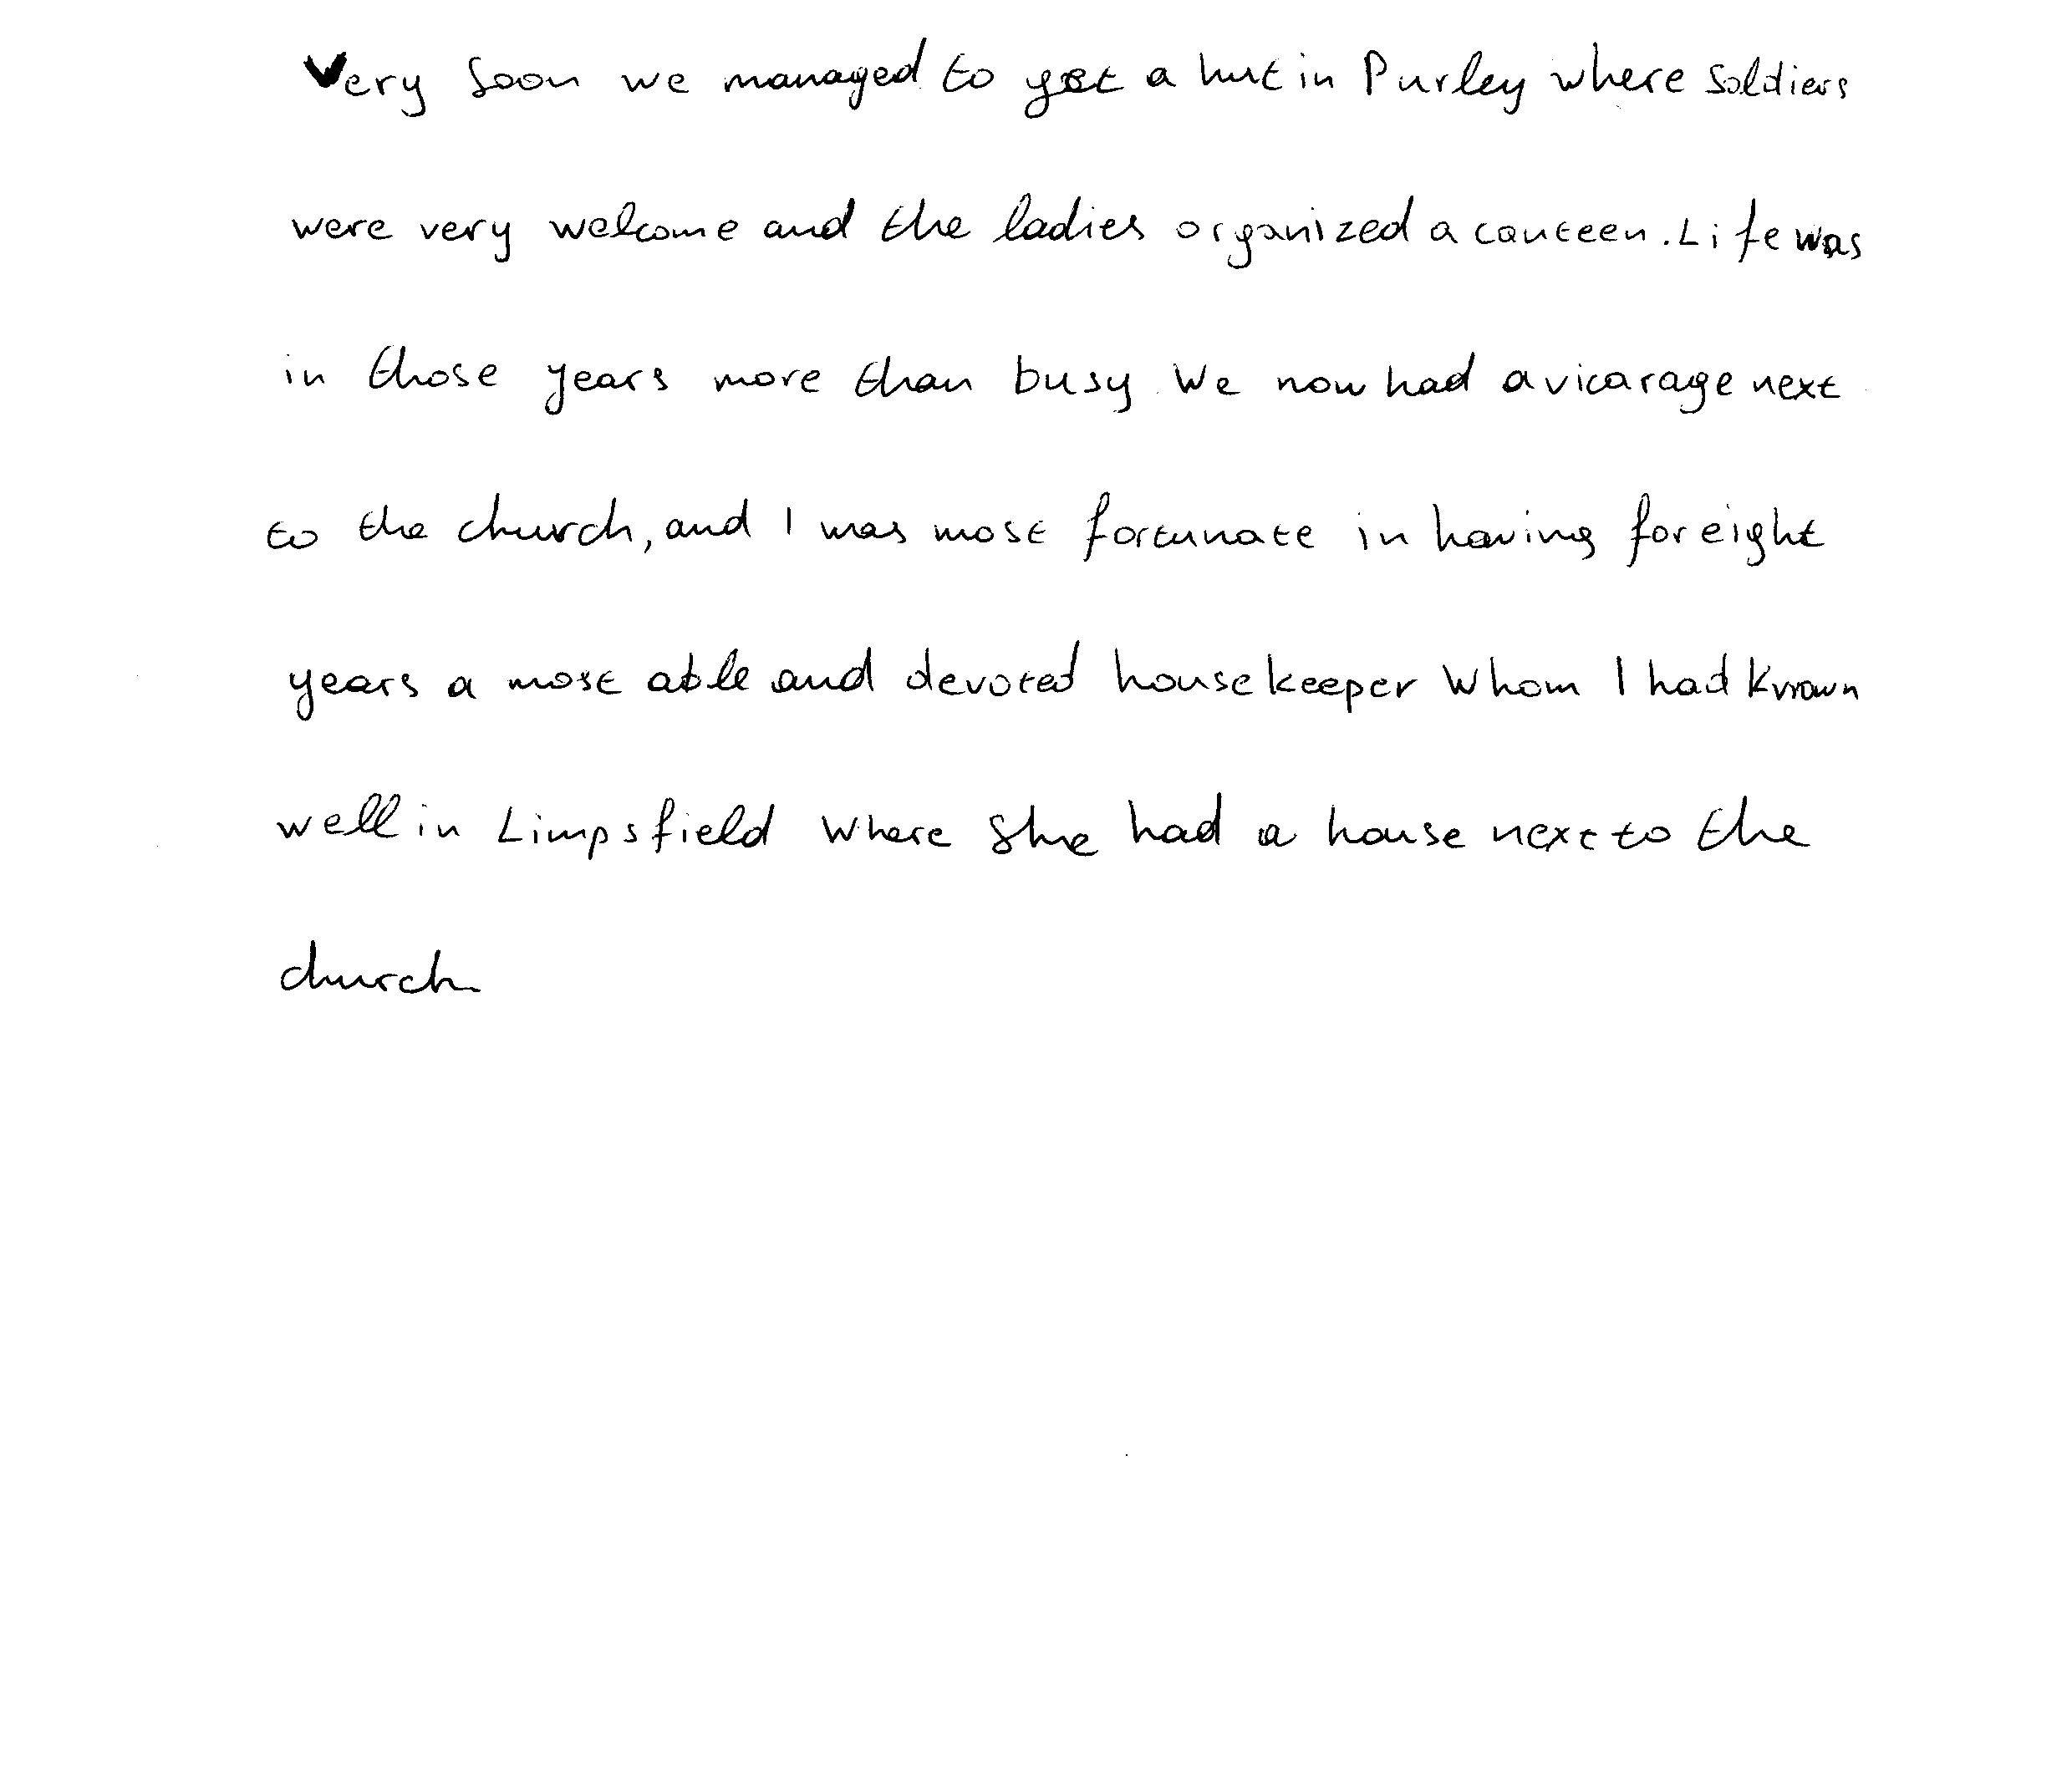 Very soon we managed to get a hut in Purley where soldiers
were very welcome and the ladies organized a canteen. Life was
in those years more than busy. We now had a vicarage next
to the church, and I was most fortunate in having for eight
years a most able and devoted housekeeper whom I had known
well in Limpsfield where she had a house next to the
church.